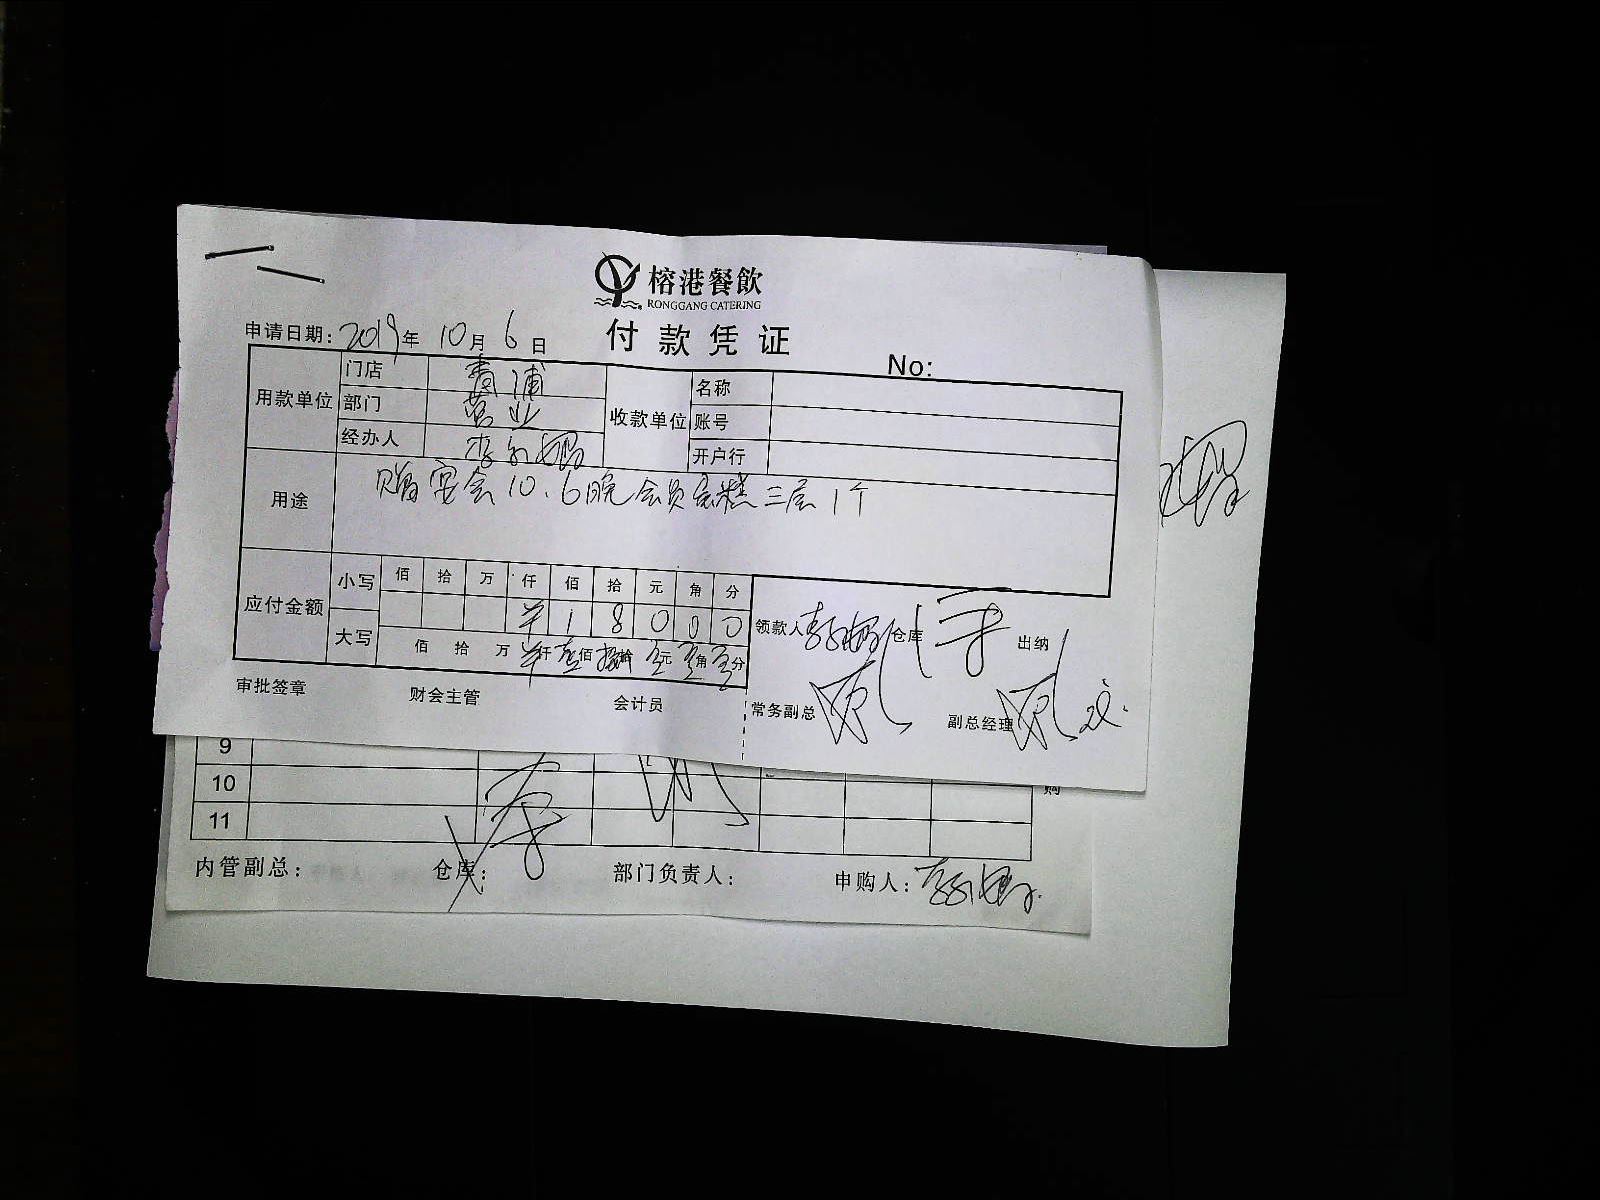 榕港餐飲
RONGGANG CATERING
付款凭证
申请日期: 2019年 10月 6日
No:
用款单位 门店 青浦 收款单位 名称
部门 营业 账号
经办人 开户行
用途 购宴会10.6晚会员蛋糕三层1个
应付金额 小写 佰 拾 万 仟 佰 拾 元 角 分
¥ 1 8 0 0 0
大写 佰 拾 万 仟 壹佰 捌拾 零元 零角 零分
领款人 仓库 出纳
审批签章 财会主管 会计员 常务副总 副总经理
9
10
11
购
内管副总: 仓库: 部门负责人: 申购人: